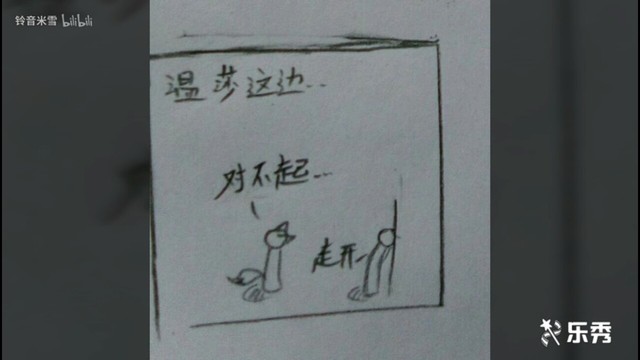 铃音米雪 bilibili
温莎这边...
对不起...
走开
乐秀